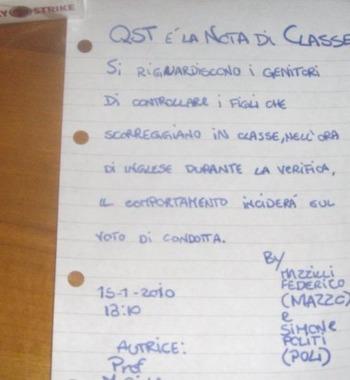 STRIKE
QST É LA NOTA DI CLASSE
SI RIGUARDISCONO I GENITORI
DI CONTROLLARE I FIGLI CHE
SCORREGGIANO IN CLASSE, NELL'ORA
DI INGLESE DURANTE LA VERIFICA,
IL COMPORTAMENTO INCIDERÁ SUL
VOTO DI CONDOTTA.
By
MAZZILLI
FEDERICO
(MAZZO)
E
SIMONE
POLITI
(POLI)
15-1-2010
13:10
AUTRICE:
Prof